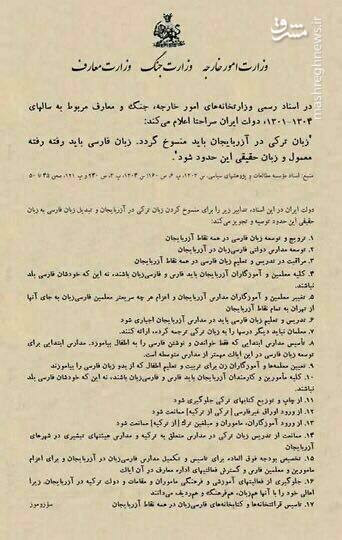 مشرق
mashreghnews.ir
وزارت امور خارجه وزارت جنگ وزارت معارف
در اسناد رسمی وزارتخانه‌های امور خارجه، جنگ و معارف مربوط به سالهای
۱۳۰۴-۱۳۰۱، دولت ایران صراحتا اعلام می‌کند:
"زبان ترکی در آزربایجان باید منسوخ گردد. زبان فارسی باید رفته رفته
معمول و زبان حقیقی این حدود شود".
منبع: اسناد مؤسسه مطالعات و پژوهشهای سیاسی، س ۱۳۰۲، پ ۶، ص ۱۶۰؛ س ۱۳۰۴، پ ۲، ص ۲۴۰ و پ ۱۲۱، صص ۴۵ تا ۵۰
دولت ایران در این اسناد، تدابیر زیر را برای منسوخ کردن زبان ترکی در آزربایجان و تبدیل زبان فارسی به زبان
حقیقی این حدود توصیه و تجویز می‌کند:
۱. ترویج و توسعه زبان فارسی در همه نقاط آزربایجان
۲. توسعه مدارس دولتی فارسی‌زبان در آزربایجان
۳. مراقبت در تدریس و تعلیم زبان فارسی در همه نقاط آزربایجان
۴. کلیه معلمین و آموزگاران آزربایجان باید فارس و فارسی‌زبان باشند، نه این که خودشان فارسی بلد
نباشند.
۵. تغییر معلمین و آموزگاران مدارس آزربایجان و اعزام هر چه سریعتر معلمین فارسی‌زبان به جای آنها
از تهران به تمام نقاط آزربایجان
۶. تدریس و تعلیم زبان فارسی باید در مدارس آزربایجان اجباری شود
۷. معلمان نباید دیگر درسها را به زبان ترکی ترجمه کرده، ارائه کنند.
۸. تأسیس مدارس ابتدایی که فقط خواندن و نوشتن فارسی را به اطفال بیاموزد. مدارس ابتدایی برای
توسعه زبان فارسی در این ایالت مهمتر از مدارس متوسطه است.
۹. تعیین معلمه‌ها و آموزگاران زن برای تربیت و تعلیم اطفال که از بدو زبان فارسی را بیاموزند
۱۰. کلیه مأمورین و کارمندان آزربایجان باید فارس و فارسی‌زبان باشند، نه این که خودشان فارسی بلد
نباشند.
۱۱. از چاپ و توزیع کتابهای ترکی جلوگیری شود
۱۲. از ورود اوراق غیرفارسی [ترکی از ترکیه] ممانعت شود
۱۳. از ورود آموزگاران، ماموران و مبلغین ترک [از ترکیه] ممانعت شود
۱۴. ممانعت از تدریس زبان ترکی در مدارس متعلق به ترکیه و مدارس هیئتهای تبشیری در شهرهای
آزربایجان
۱۵. تخصیص بودجه فوق العاده برای تاسیس و تکمیل مدارس فارسی‌زبان در آزربایجان و برای اعزام
مامورین و معلمین فارس و گسترش فعالیتهای اداره معارف در آن ایالت
۱۶. جلوگیری از فعالیتهای آموزشی و فرهنگی ماموران و مقامات و دولت ترکیه در آزربایجان. زیرا
اهالی خود را با آنها هم‌زبان، هم‌فرهنگ و هم‌ردیف می‌دانند
۱۷. تاسیس قرائتخانه‌ها و کتابخانه‌های فارسی‌زبان در همه نقاط آزربایجان سؤزوموز